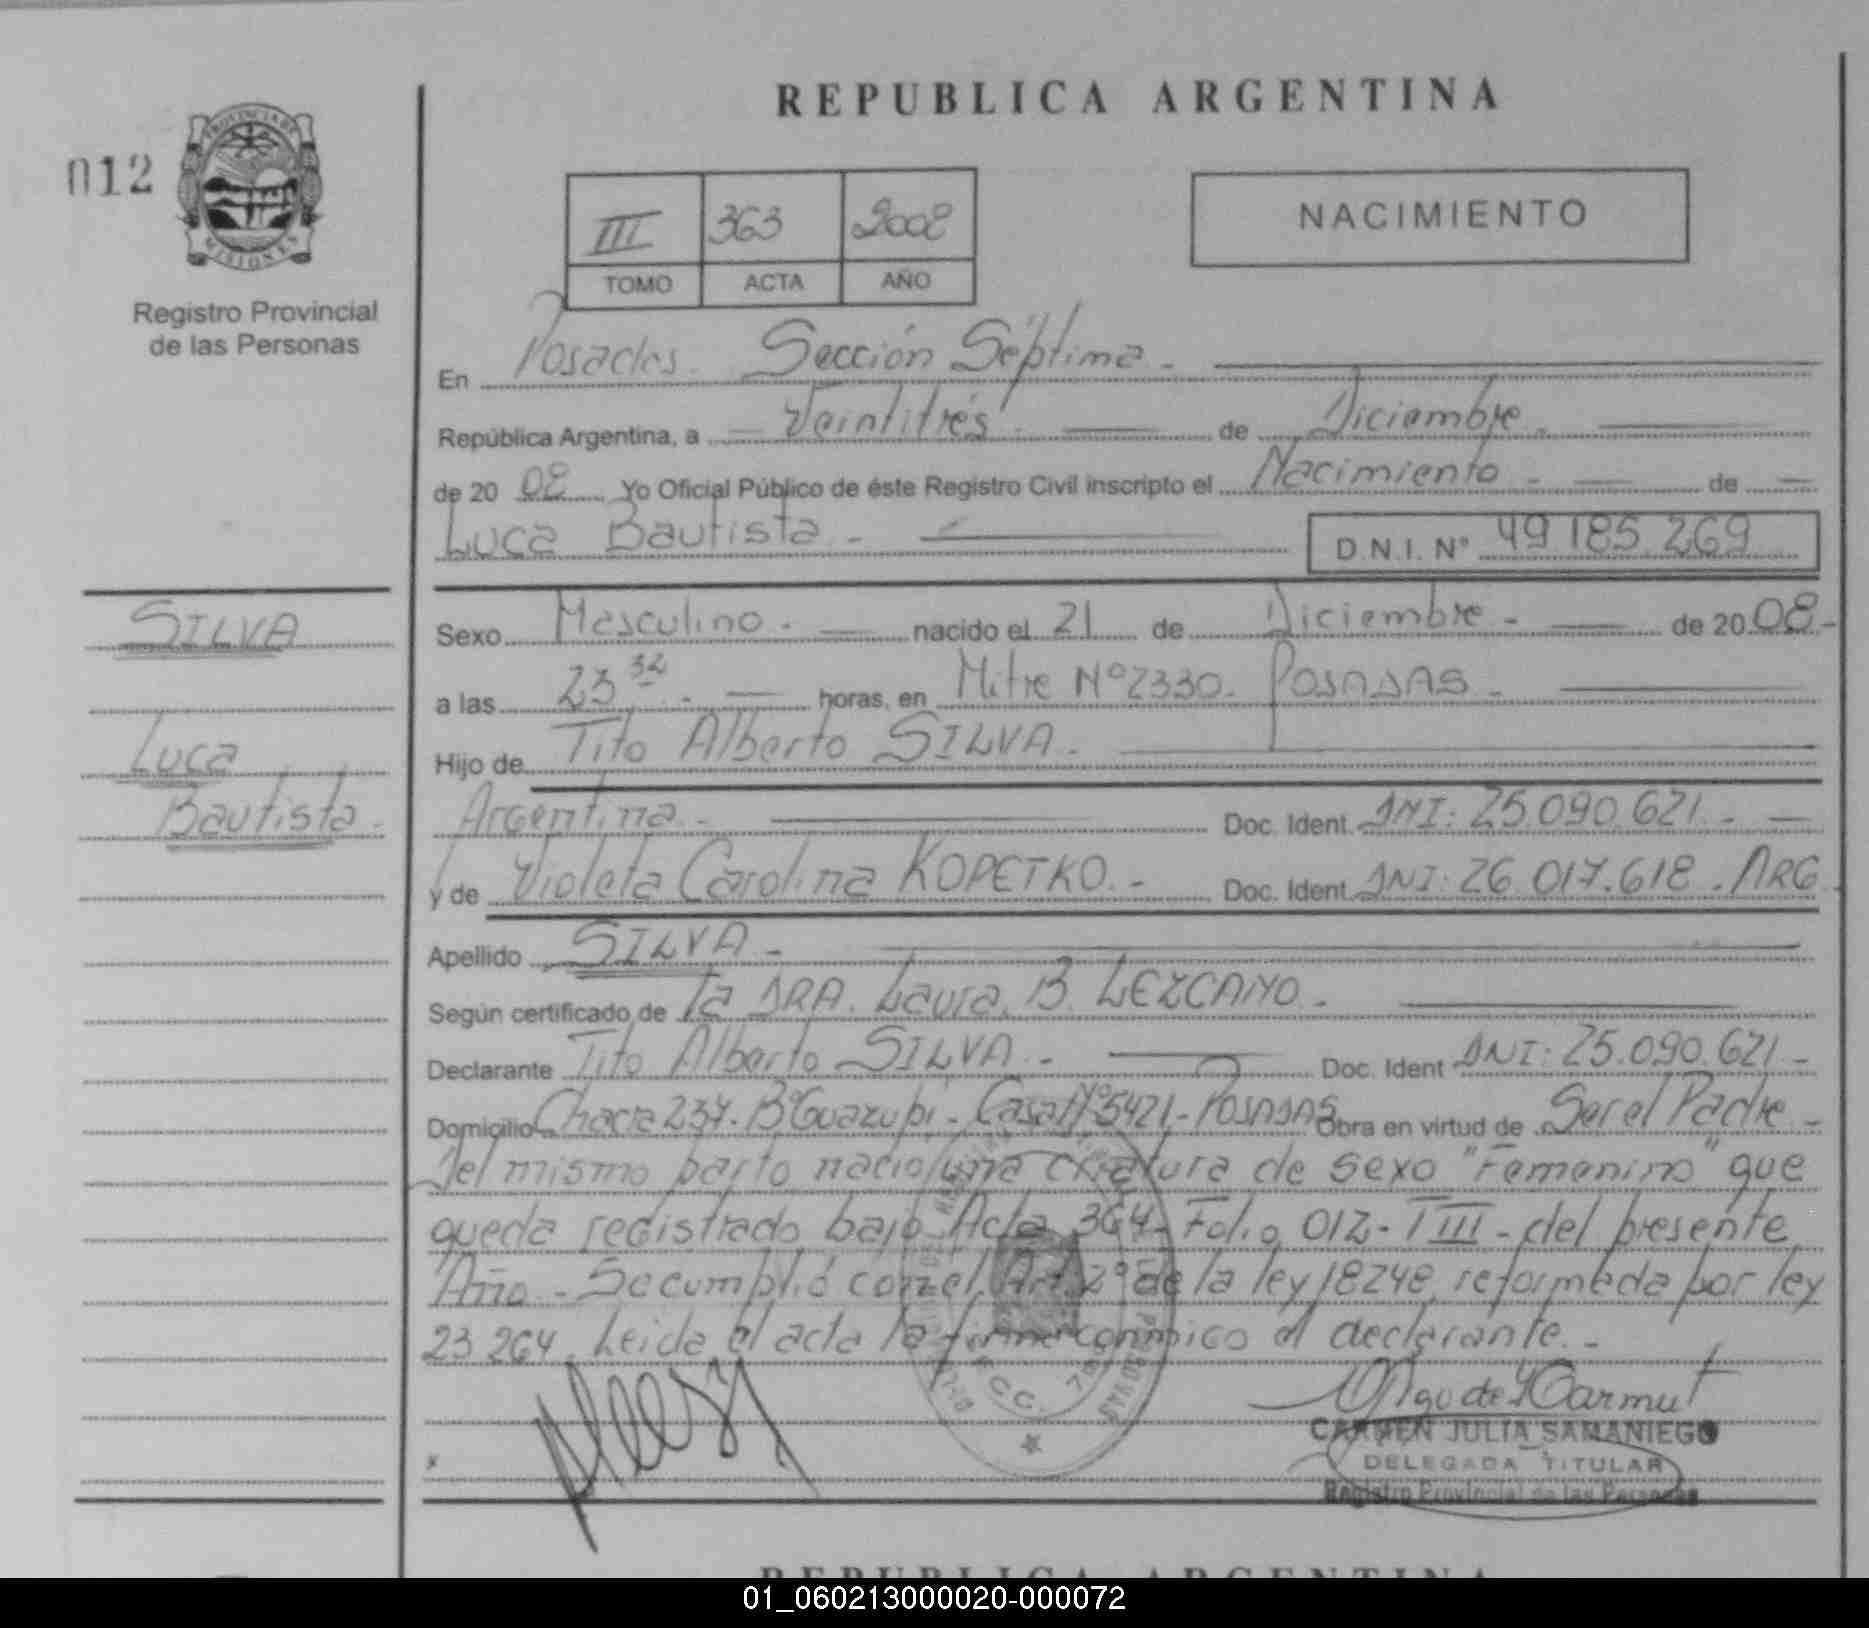 REPUBLICA ARGENTINA
012
PROVINCIA DE
MISIONES
Registro Provincial
de las Personas
III 363 2008
TOMO ACTA AÑO
NACIMIENTO
En Posadas. Sección Séptima.-
República Argentina, a Veintitrés de Diciembre.
de 2008 Yo Oficial Público de éste Registro Civil inscripto el Nacimiento - de
Luca Bautista.- D.N.I. Nº 49 185.269
SILVA
Luca
Bautista.
Sexo Masculino.- nacido el 21 de Diciembre.- de 2008.-
a las 23 32.- horas, en Mitre Nº 2330. POSADAS.-
Hijo de Tito Alberto SILVA.
Argentina.- Doc. Ident. DNI: 25.090.621.-
y de Violeta Carolina KOPETKO.- Doc. Ident. DNI: 26.017.618. ARG.
Apellido SILVA.-
Según certificado de la DRA. Laura B. LEZCANO.-
Declarante Tito Alberto SILVA.- Doc. Ident DNI: 25.090.621.-
Domicilio Chacra 237- Bº Guazupi- Casa Nº 5421- POSADAS Obra en virtud de Ser el Padre.-
Del mismo parto nacio una criatura de sexo "Femenino" que
queda registrado bajo Acta 364- Folio 012- T III- del presente
Año.- Se cumplió con el Art. 2º de la ley 18248, reformada por ley
23.264. Leida el acta la firma conmigo el declarante.-
CARMEN JULIA SAMANIEGO
DELEGADA TITULAR
Registro Provincial de las Personas
REPUBLICA ARGENTINA
01_060213000020-000072